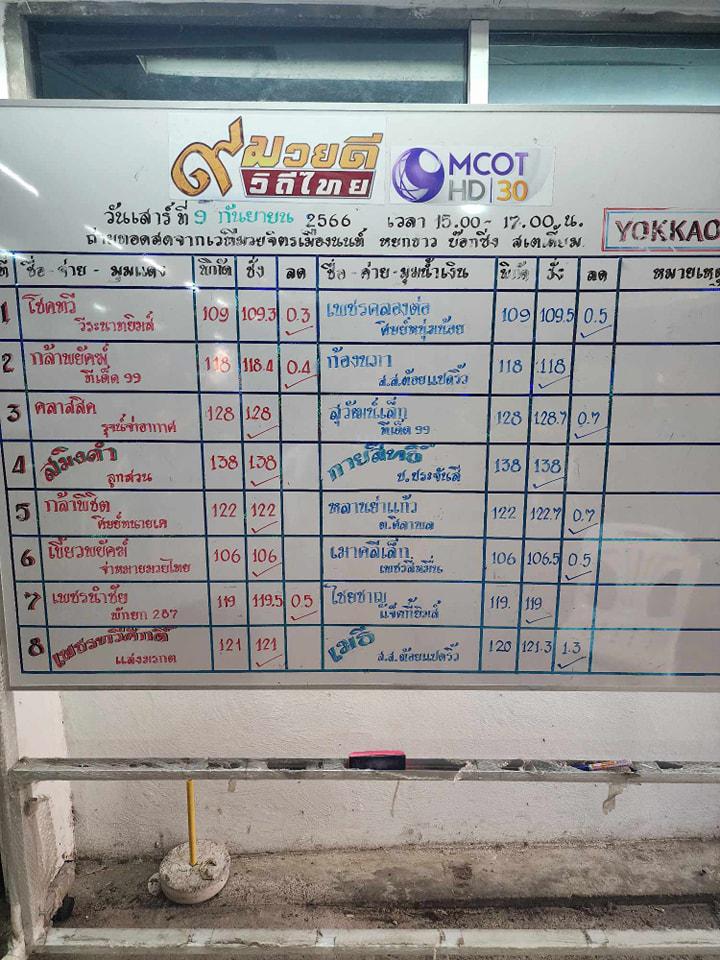 ๙ มวยดี
วิถีไทย
MCOT
HD 30
วันเสาร์ ที่ 9 กันยายน 2566 เวลา 15.00 - 17.00 น.
ถ่ายทอดสดจากเวทีมวยจิตรเมืองนนท์ หยกขาว บ๊อกซิ่ง สเตเดี้ยม
YOKKAO
ที่ ชื่อ - ค่าย - มุมแดง พิกัด ชั่ง ลด ชื่อ - ค่าย - มุมน้ำเงิน พิกัด ชั่ง ลด หมายเหตุ
1 โชคทวี 109 109.3 0.3 เพชรคลองต่อ 109 109.5 0.5
วีระนาทยิมส์ ศิษย์หนุ่มน้อย
2 กล้าพยัคฆ์ 118 118.4 0.4 ก้องนภา 118 118
ทีเด็ด 99 ส.ส.ต้อยแปดริ้ว
3 คลาสสิค 128 128 สุวัฒน์เล็ก 128 128.7 0.7
รุจน์จ่าอากาศ ทีเด็ด 99
4 สมิงดำ 138 138 กายสิทธิ์ 138 138
ลูกสวน ป.ประจันสี
5 กล้าพิชิต 122 122 หลานย่าแก้ว 122 122.7 0.7
ศิษย์ทนายเค ต.ศิลาพล
6 เขี้ยวพยัคฆ์ 106 106 เมาคลีเล็ก 106 106.5 0.5
จ่าหมายมวยไทย เพชรสี่หมื่น
7 เพชรนำชัย 119 119.5 0.5 ไชยชาญ 119. 119
พักยก 287 แจ็คกี้ยิมส์
8 121 121 เมธี 120 121.3 1.3
แสงมรกต ส.ส.ต้อยแปดริ้ว